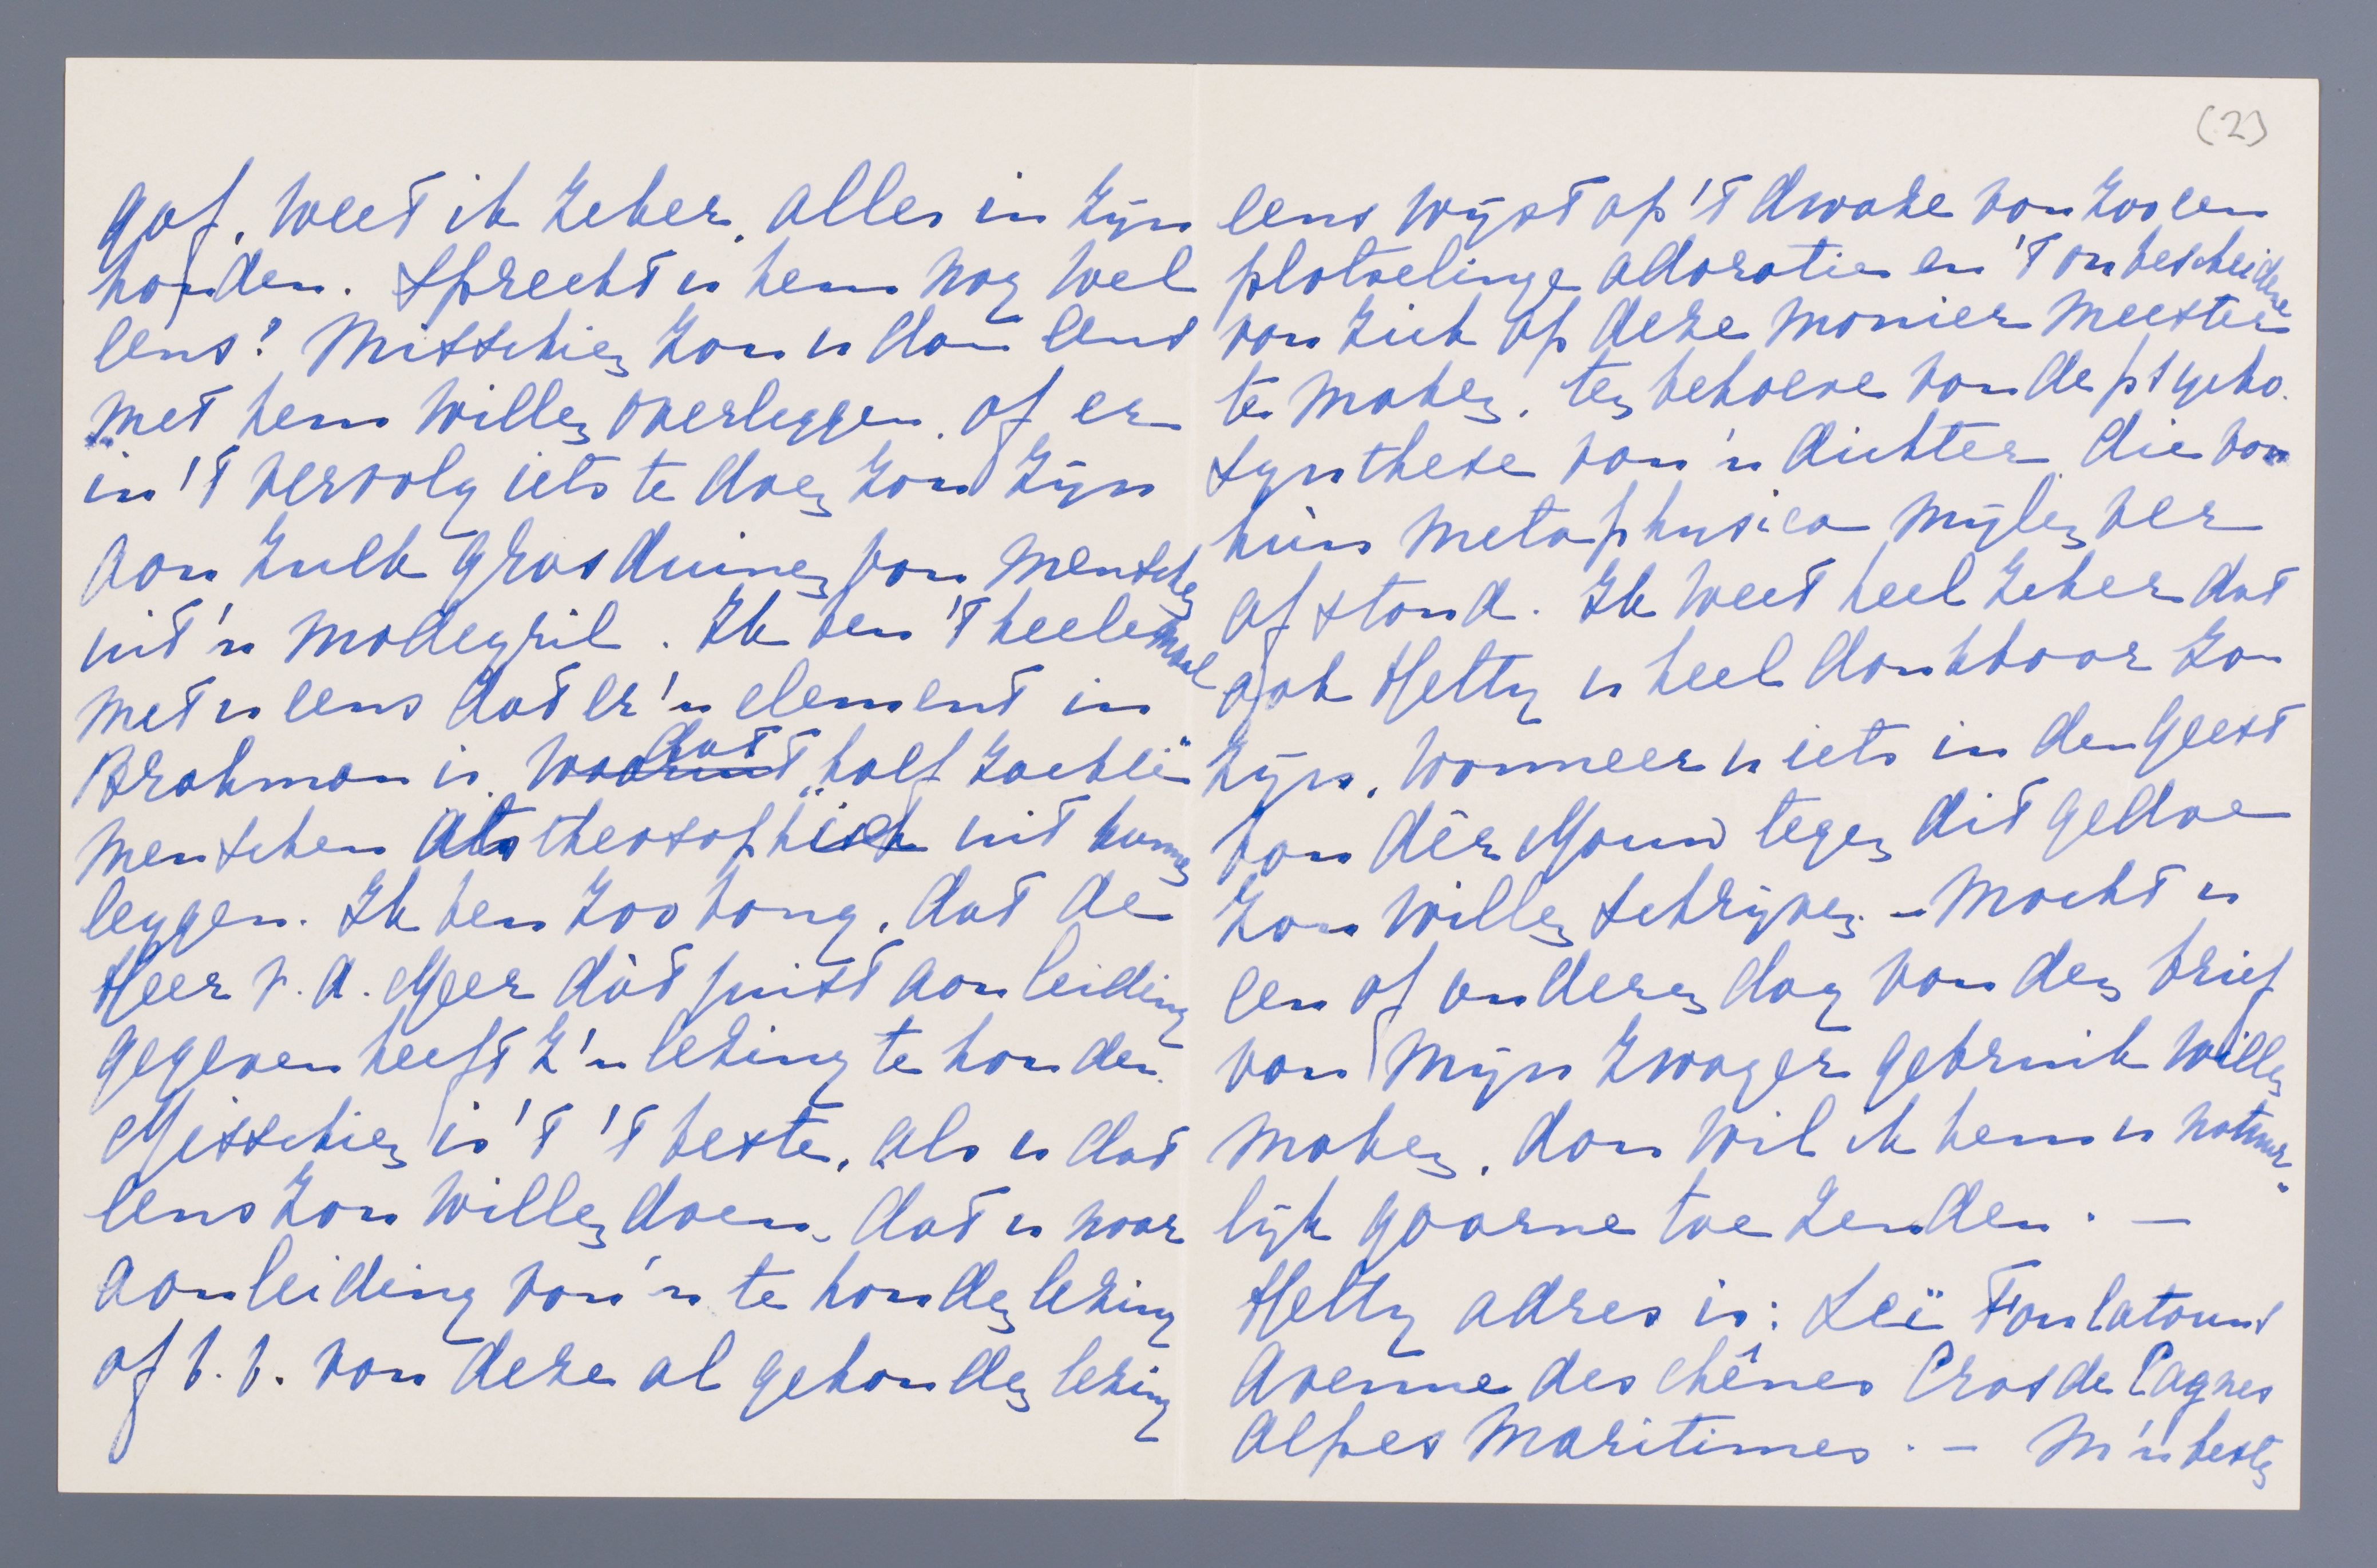 gaf, weet ik zeker, alles in zijn
houden. Spreekt u hem nog wel
eens? Misschien zou u dan eens
met hem willen overleggen, of er
in 't vervolg iets te doen zou zijn
aan zulk grasduinen van menschen
uit 'n modegril. Ik ben 't heelemaal
met u eens dat er 'n element in
Brahman is, dat "half zachte"
menschen als theosophisch uit kunnen
leggen. Ik ben zoo bang, dat de
Heer v. d. Meer dàt juist aanleiding
gegeven heeft z'n lezing te houden.
Misschien is 't 't beste, als u dat
eens zou willen doen, dat u naar
aanleiding van 'n te houden lezing
of b.v. van deze al gehouden lezing
(2)
eens wijst op 't dwaze van zoo'en
plotselinge adoratie en 't onbescheidene
van zich op deze manier meester
te maken, ten behoeve van de psycho-
synthese van 'n dichter, die van
hùn metaphysica mijlen ver
af stond. Ik weet heel zeker dat
ook Hetty u heel dankbaar zou
zijn, wanneer u iets in den geest
van dèr Mouw tegen dit gedoe
zou willen schrijven. – Mocht u
een of anderen dag van den brief
van mijn zwager gebruik willen
maken, dan wil ik hem u natuur-
lijk gaarne toe zenden. —
Hetty adres is: Leï Foulatouns
Avenue des chênes Cros de Cagnes
Alpes Maritimes. – M'n beste